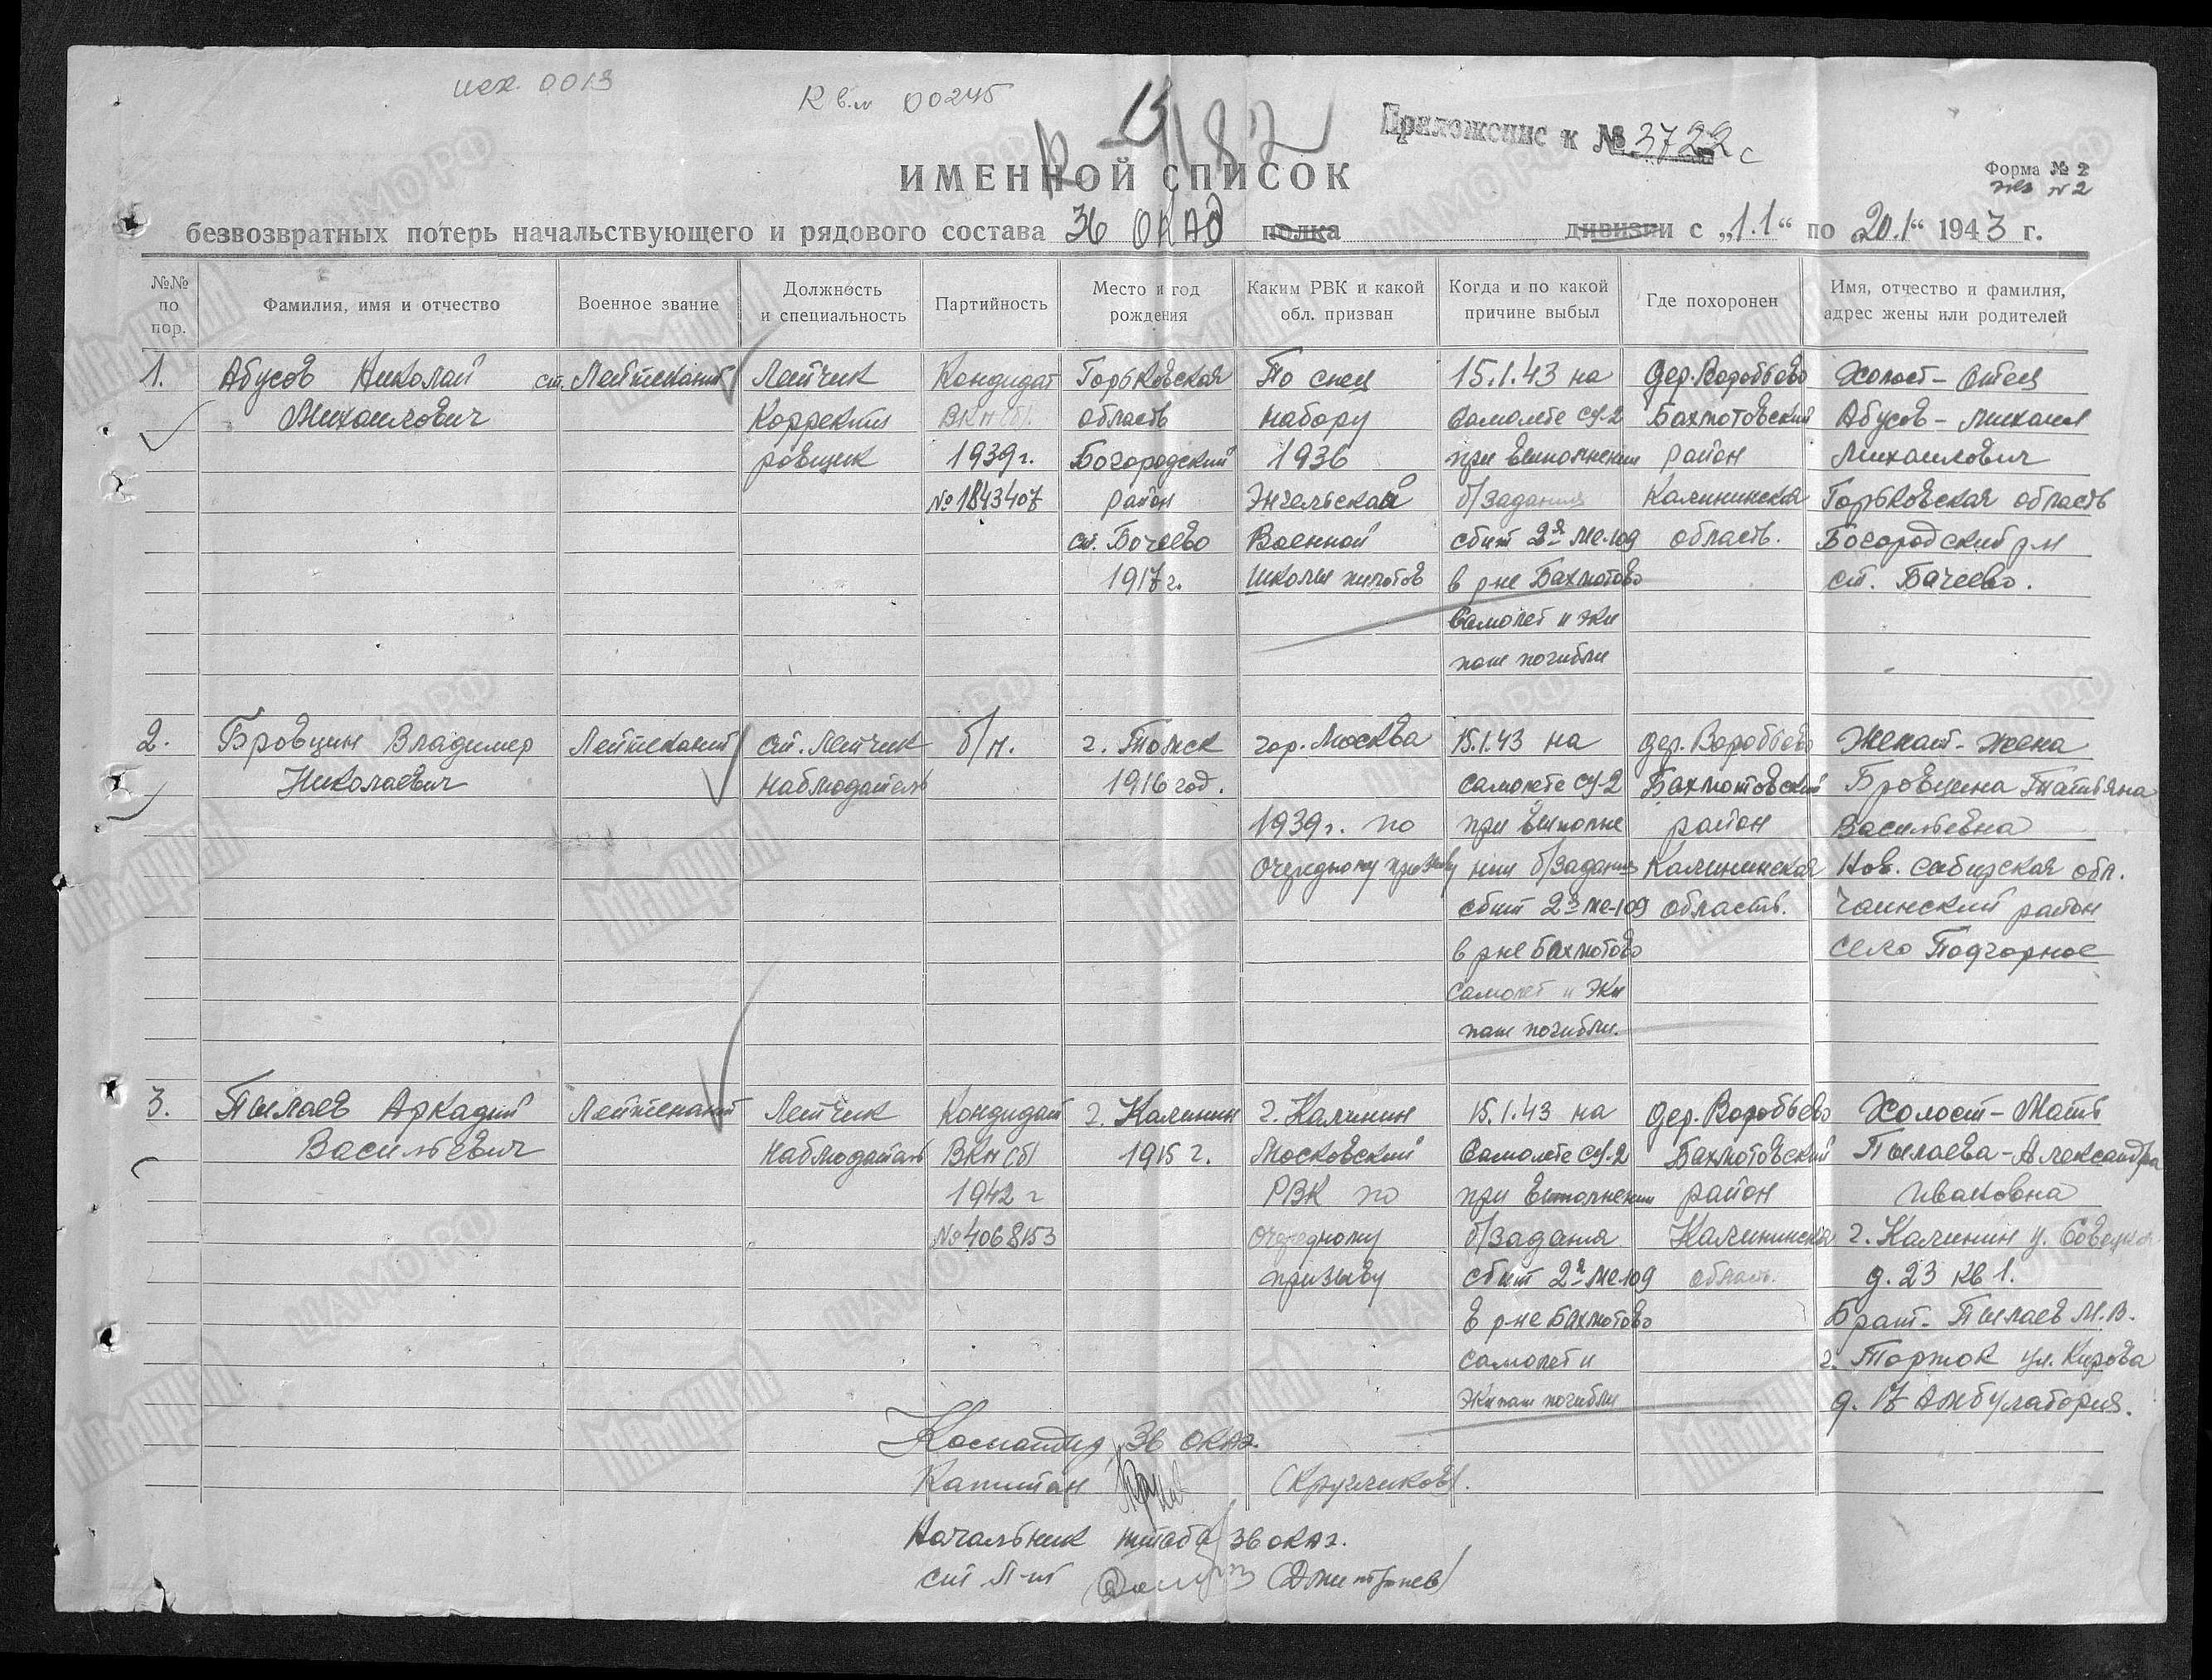 исх. 0013
К в.м 00245
13
К-4182
Приложение к № 3722с
ИМЕННОЙ СПИСОК
Форма № 2
безвозвратных потерь начальствующего и рядового состава 36 ОКАЭ полка дивизии с „1.1“ по „20.1“ 1943 г.
№№ по пор.
Фамилия, имя и отчество
Военное звание
Должность и специальность
Партийность
Место и год рождения
Каким РВК и какой обл. призван
Когда и по какой причине выбыл
Где похоронен
Имя, отчество и фамилия, адрес жены или родителей
1. Абусов Николай ст. Лейтенант Летчик Кондидат Горьковская По спец 15.1.43 на дер. Воробьево Холост - Отец
Михаилович Корректи ВКП(б) область набору самолете СУ-2 Бахмотовский Абусов - Михаил
ровщик 1939г. Богородский 1936 при выполнении район Михаилович
№1843407 район Энгельской б/задания Калининская Горьковская область
ст. Бочеево Военной сбит 2я Ме-109 область. Богородский р-н
1917г. школы пилотов в р-не Бахмотово ст. Бачеево.
Самолет и эки
паж погибли
2. Бровцин Владимер Лейтенант ст. Летчик б/п. г. Томск гор. Москва 15.1.43 на дер. Воробьево Женат - жена
Николаевич наблюдатель 1916 год. самолете СУ-2 Бахмотовский Бровцина Татьяна
1939г. по при выполне район Васильевна
очередному призыву нии б/задания Калининская Нов. сибирская обл.
сбит 2я Ме-109 область. Чаинский район
в р-не Бахмотово село Подгорное
самолет и эки
паж погибли.
3. Пылаев Аркадий Лейтенант Летчик Кондидат г. Калинин г. Калинин 15.1.43 на дер. Воробьево Холост - Мать
Васильевич Наблюдатель ВКП(б) 1915 г. Московский Самолете СУ-2 Бахмотовский Пылаева - Александра
1942 г РВК по при выполнении район Ивановна
№4068153 очередному б/задания Калининская г. Калинин у. Совецкая
призыву сбит 2я Ме-109 область. д. 23 кв 1.
в р-не Бахмотово Брат - Пылаев М.В.
самолет и г. Торжок ул. Кирова
экипаж погибли д. 17 Амбулатория.
Командир 36 ОКАЭ.
Капитан (Кругликов).
Начальник штаба 36 ОКАЭ.
ст Л-нт (Дмитриев)